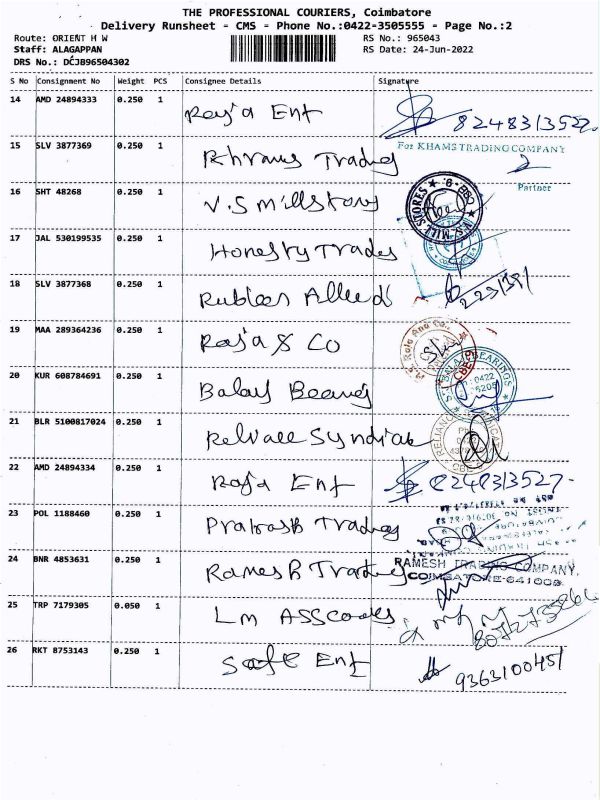 THE PROFESSIONAL COURIERS, Coimbatore
Delivery Runsheet - CMS - Phone No.:0422-3505555 - Page No.:2
Route: ORIENT H W RS No.: 965043
Staff: ALAGAPPAN RS Date: 24-Jun-2022
DRS No.: DCJB96504302
S No Consignment No Weight PCS Consignee Details Signature
14 AMD 24894333 0.250 1 Raja Ent 8248313527
15 SLV 3877369 0.250 1 Khrams Trading For KHAMS TRADING COMPANY
Partner
16 SHT 48268 0.250 1 V.S Mill Stores
17 JAL 530199535 0.250 1 Honesty Trades
18 SLV 3877368 0.250 1 Rubber Allied
19 MAA 289364236 0.250 1 Raja & Co
20 KUR 608784691 0.250 1 Balaji Bearing BALAJI BEARINGS
21 BLR 5100817024 0.250 1 Reliance Syndicate
22 AMD 24894334 0.250 1 Raja Ent 8248313527
23 POL 1188460 0.250 1 Prakash Trading
24 BNR 4853631 0.250 1 Ramesh Trading RAMESH TRADING COMPANY,
COIMBATORE-641009
25 TRP 7179305 0.050 1 LM Associates
26 RKT 8753143 0.250 1 Safe Ent 9363100451